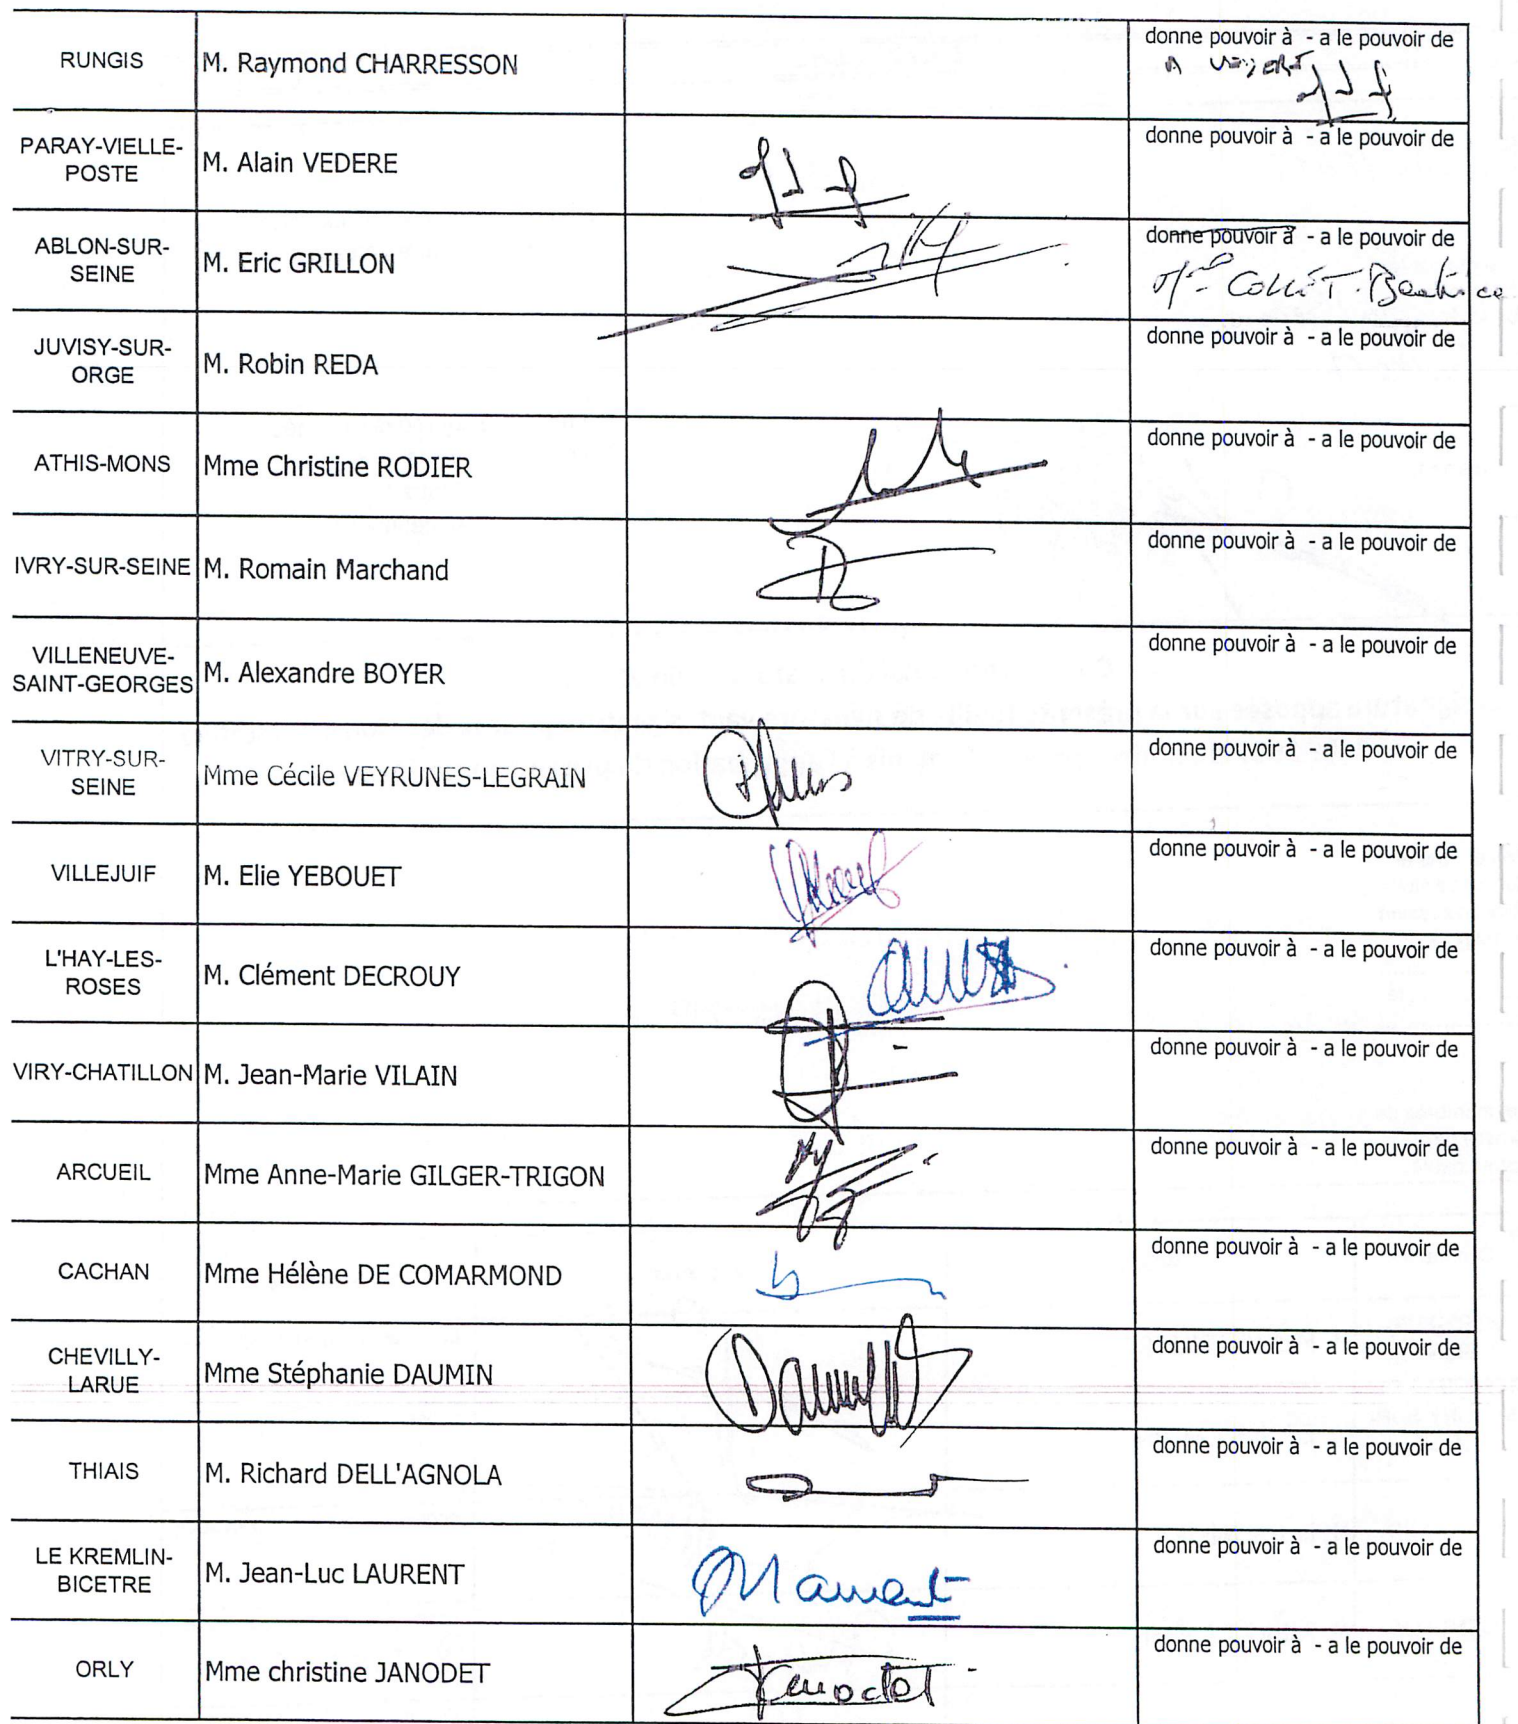 RUNGIS M. Raymond CHARRESSON donne pouvoir à - a le pouvoir de
A VEDERE
PARAY-VIELLE-
POSTE M. Alain VEDERE donne pouvoir à - a le pouvoir de
ABLON-SUR-
SEINE M. Eric GRILLON donne pouvoir à - a le pouvoir de
Beatrice
JUVISY-SUR-
ORGE M. Robin REDA donne pouvoir à - a le pouvoir de
ATHIS-MONS Mme Christine RODIER donne pouvoir à - a le pouvoir de
IVRY-SUR-SEINE M. Romain Marchand donne pouvoir à - a le pouvoir de
VILLENEUVE-
SAINT-GEORGES M. Alexandre BOYER donne pouvoir à - a le pouvoir de
VITRY-SUR-
SEINE Mme Cécile VEYRUNES-LEGRAIN donne pouvoir à - a le pouvoir de
VILLEJUIF M. Elie YEBOUET donne pouvoir à - a le pouvoir de
L'HAY-LES-
ROSES M. Clément DECROUY donne pouvoir à - a le pouvoir de
VIRY-CHATILLON M. Jean-Marie VILAIN donne pouvoir à - a le pouvoir de
ARCUEIL Mme Anne-Marie GILGER-TRIGON donne pouvoir à - a le pouvoir de
CACHAN Mme Hélène DE COMARMOND donne pouvoir à - a le pouvoir de
CHEVILLY-
LARUE Mme Stéphanie DAUMIN donne pouvoir à - a le pouvoir de
THIAIS M. Richard DELL'AGNOLA donne pouvoir à - a le pouvoir de
LE KREMLIN-
BICETRE M. Jean-Luc LAURENT donne pouvoir à - a le pouvoir de
ORLY Mme christine JANODET Janodet donne pouvoir à - a le pouvoir de